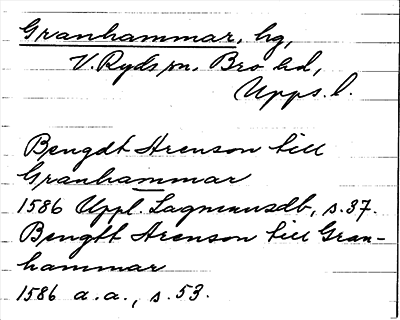 Granhammar, hg,
V. Ryds sn. Bro hd,
Upps. l.
Bengdt Arenson till
Granhammar
1586 Uppl. Lagmansdb, s. 37.
Bengtt Arenson till Gran-
hammar
1586 a.a., s. 53.